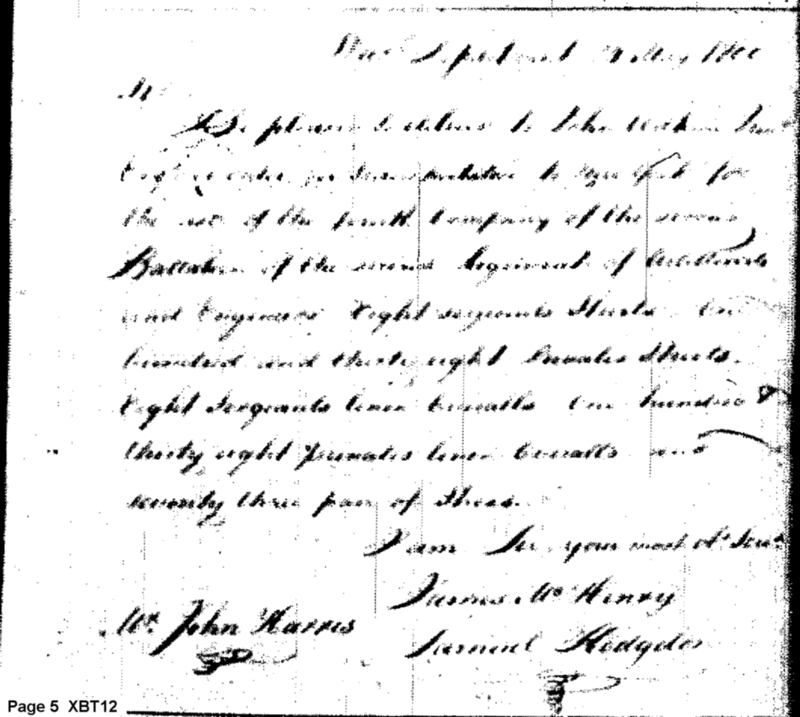 War Department May 1800
Sir
Be pleased to deliver to John
for transportation to for
the use of the fourth Company of the second
Battalion of the second Regiment of Artillerists
and Engineers Eight sergeants Shirts. One
hundred and thirty eight Privates Shirts.
Eight Sergeants linen overalls One hundred &
thirty eight privates linen overalls and
seventy three pair of Shoes.
I am Sir, your most Obt Servt
James McHenry
Mr. John Harris
Samuel Hodgdon
Page 5 XBT12